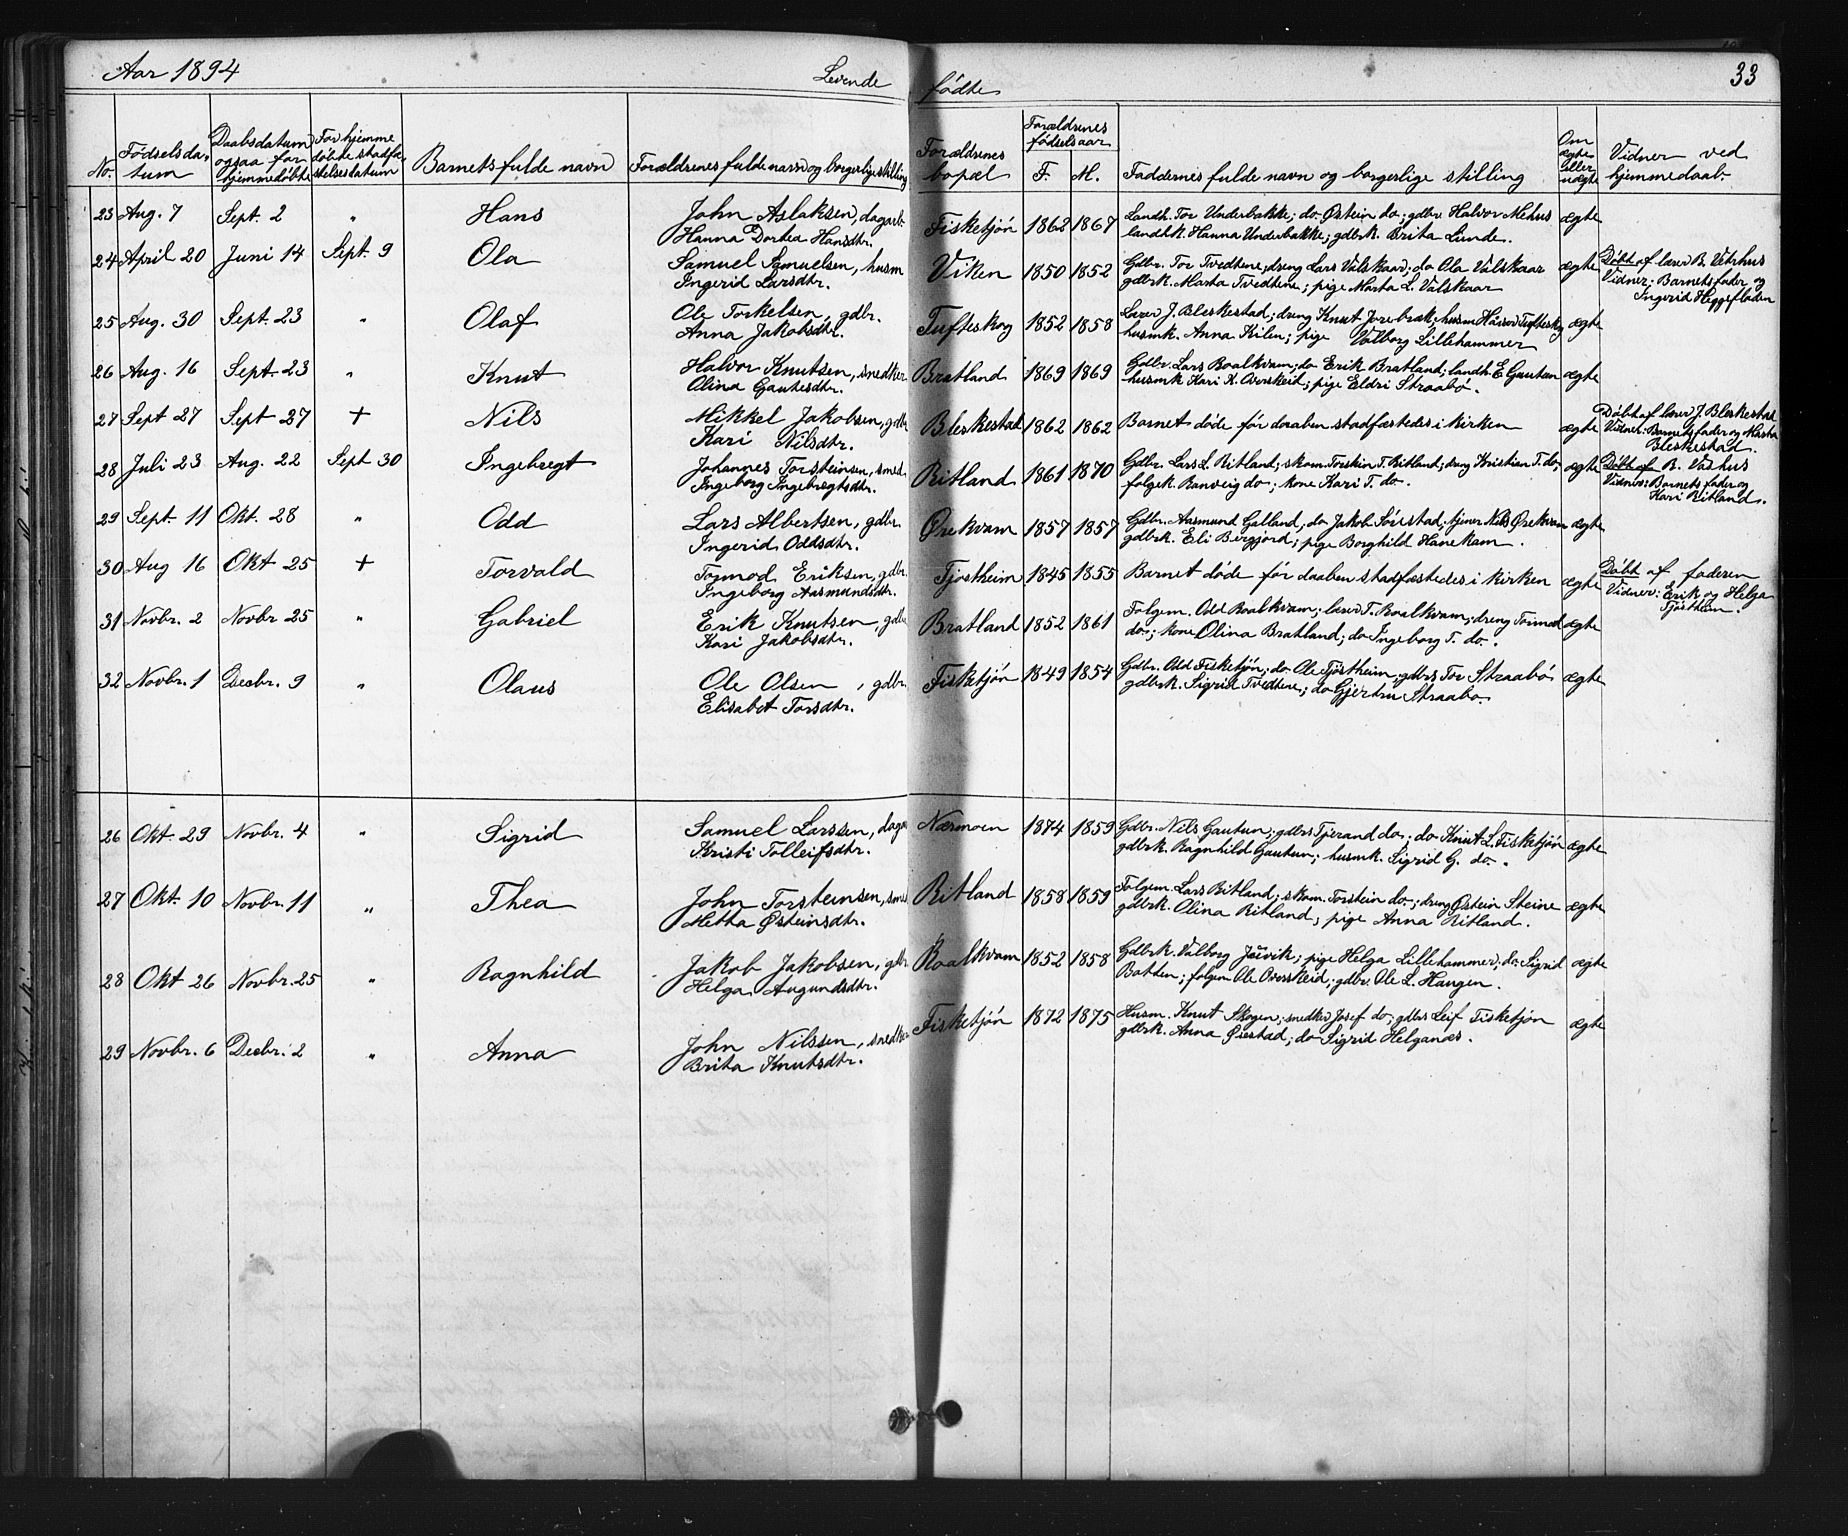 Aar 1894 Levende fødte 33
No. Fødselsda- tum Daabsdatum ogsaa for hjemmedøbte For hjemme døbte stadfæ- stelsesdatum Barnets fulde navn Forældrenes fulde navn og borgerlige stilling Forældrenes bopæl Forældrenes fødselsaar F. M. Faddernes fulde navn og borgerlige stilling Om ægte eller uægte Vidner ved hjemmedaab.
23 Aug. 7 Sept. 2 " Hans John Aslaksen, dagarb. Fisketjøn 1862 1867 Landh. Tor Underbakke; do Østein do; gdbr. Halvor Mehus ægte
Hanna Dortea Hansdtr. landhk. Hanna Underbakke; gdbrk. Brita Lunde.
24 April 20 Juni 14 Sept. 9 Ola Samuel Samuelsen, husm Viken 1850 1852 Gdbr. Tor Tvedtene; dreng Lars Valskaar; do Ola Valskaar ægte Døbt af lærer B. Vetrhus
Ingerid Larsdtr. gdbrk. Marta Tvedtene; pige Marta L. Valskaar Vidner: Barnets fader og
Ingerid Heggefloden
25 Aug. 30 Sept. 23 " Olaf Ole Torkelsen, gdbr. Tufteskog 1852 1858 Lærer J. Bleskestad; dreng Knut Jorebræk; husm Halvor Tufteskog ægte
Anna Jakobsdtr. husmk. Anna Kilen; pige Valborg Lillehammer
26 Aug. 16 Sept. 23 " Knut Halvor Knutsen, snedker Bratland 1869 1869 Gdbr. Lars Roalkvam; do Erik Bratland; landh. E Gautun ægte
Olina Gautesdtr. husmk Kari K. Overskeid; pige Eldri Straabø.
27 Sept 27 Sept 27 + Nils Mikkel Jakobsen, gdbr Bleskestad 1862 1862 Barnet døde før daaben stadfæstedes i kirken ægte Døbt af lærer J. Bleskestad
Kari Nilsdtr. Vidner: Barnets fader og Marta
Bleskestad.
28 Juli 23 Aug. 22 Sept 30 Ingebregt Johannes Torsteinsen, smed. Ritland 1861 1870 Gdbr. Lars L. Ritland; skom. Torstein T. Ritland; dreng Kristian T. do. ægte Døbt af B. Vashus
Ingeborg Ingebregtsdtr. folgek. Ranveig do; kone Kari T. do. Vidner: Barnets fader og
Kari Ritland.
29 Sept. 11 Okt. 28 " Odd Lars Albertsen, gdbr. Ørekvam 1857 1857 Gdbr. Aasmund Galland; do Jakob Sørestad; tjener Nils Ørekvam ægte
Ingerid Oddsdtr. gdbrk. Eli Bergjord; pige Borghild Hanekam.
30 Aug 16 Okt 25 + Torvald Tormod Eriksen, gdbr. Tjøstheim 1845 1855 Barnet døde før daaben stadfæstedes i kirken ægte Døbt af faderen
Ingeborg Aasmundsdtr. Vidner: Erik og Helga
Tjøstheim.
31 Novbr. 2 Novbr 25 " Gabriel Erik Knutsen, gdbr Bratland 1852 1861 Folgem. Odd Roalkvam; lærer T. Roalkvam; dreng Tormod ægte
Kari Jakobsdtr. do; kone Olina Bratland; do Ingeborg T. do.
32 Novbr. 1 Decbr. 9 " Olaus Ole Olsen, gdbr. Fisketjøn 1849 1854 Gdbr. Odd Fisketjøn; do Ole Tjøstheim; gdbrs Tor Straabø ægte
Elisabet Torsdtr. gdbrk. Sigrid Tvedtene; do Gjertru Straabø.
26 Okt. 29 Novbr. 4 " Sigrid Samuel Larssen, daga Nærmoen 1874 1859 Gdbr. Nils Gautun; gdbrs Tjerand do; do Knut L. Fisketjøn ægte
Kristi Tolleifsdtr. gdbrk. Ragnhild Gautun; husmk. Sigrid G. do.
27 Okt. 10 Novbr. 11 " Thea John Torsteinsen, smed Ritland 1858 1859 Folgem. Lars Ritland; skom. Torstein do; dreng Østein Steine ægte
Metha Østeinsdtr. gdbrk. Olina Ritland; pige Anna Ritland.
28 Okt 26 Novbr. 25 " Ragnhild Jakob Jakobsen, gdbr Roalkvam 1852 1858 Gdbrk. Valborg Jøsvik; pige Helga Lillehammer; do Sigrid ægte
Helga Augundsdtr. Botten; folgem Ole Overskeid; gdbr. Ole L. Haugen.
29 Novbr. 6 Decbr. 2 " Anna John Nilssen, snedker Fisketjøn 1872 1875 Husm. Knut Skogen; snedker Josef do; gdbrs Leif Fisketjøn ægte
Brita Knutsdtr. gdbrk. Anna Ørestad; do Sigrid Helganæs.